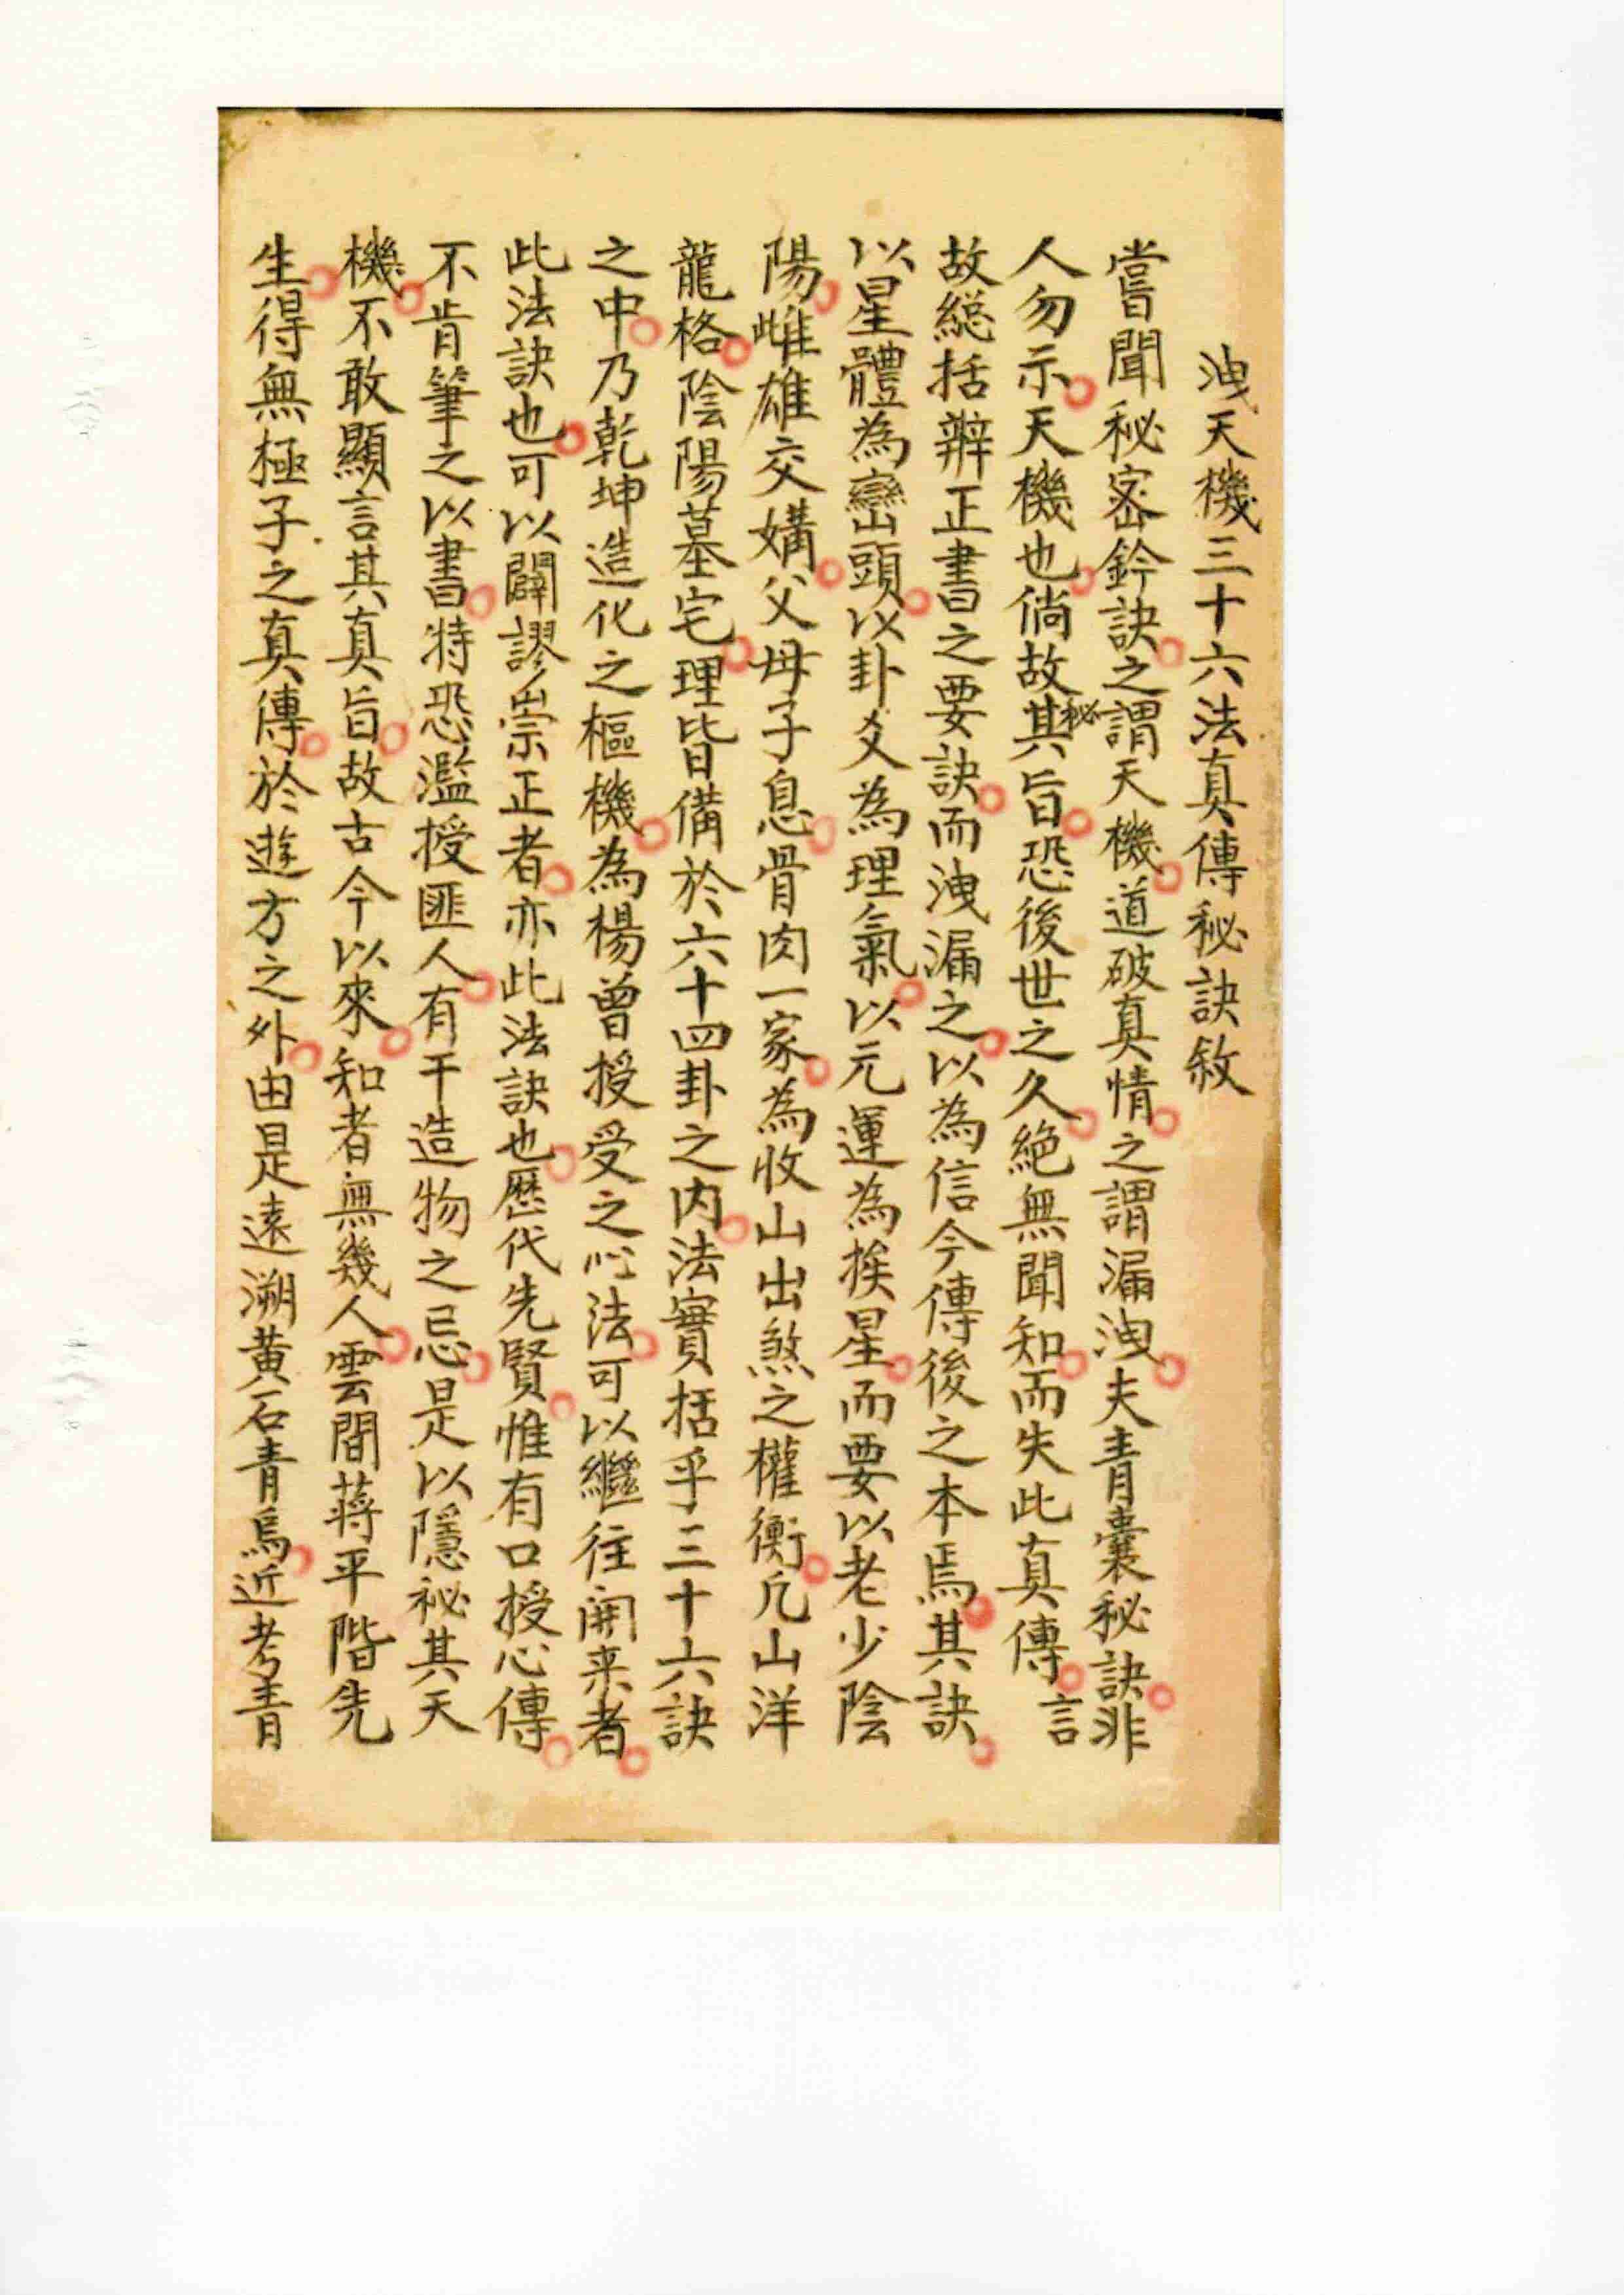 洩天機三十六法真傳秘訣敘
嘗聞秘密鈐訣之謂天機道破真情之謂漏洩夫青囊秘訣非
人勿示天機也倘故秘其旨恐後世之久絕無聞知而失此真傳言
故總括辨正書之要訣而洩漏之以為信今傳後之本焉其訣
以星體為巒頭以卦爻為理氣以元運為挨星而要以老少陰
陽雌雄交媾父母子息骨肉一家為收山出煞之權衡凢山洋
龍格陰陽墓宅理皆備於六十四卦之内法實括乎三十六訣
之中乃乾坤造化之樞機為楊曾授受之心法可以繼往開来者
此法訣也可以闢謬崇正者亦此法訣也歷代先賢惟有口授心傳
不肯筆之以書特恐濫授匪人有干造物之忌是以隱秘其天
機不敢顯言其真旨故古今以來知者無幾人雲間蔣平階先
生得無極子之真傳於遊方之外由是遠溯黃石青烏近考青